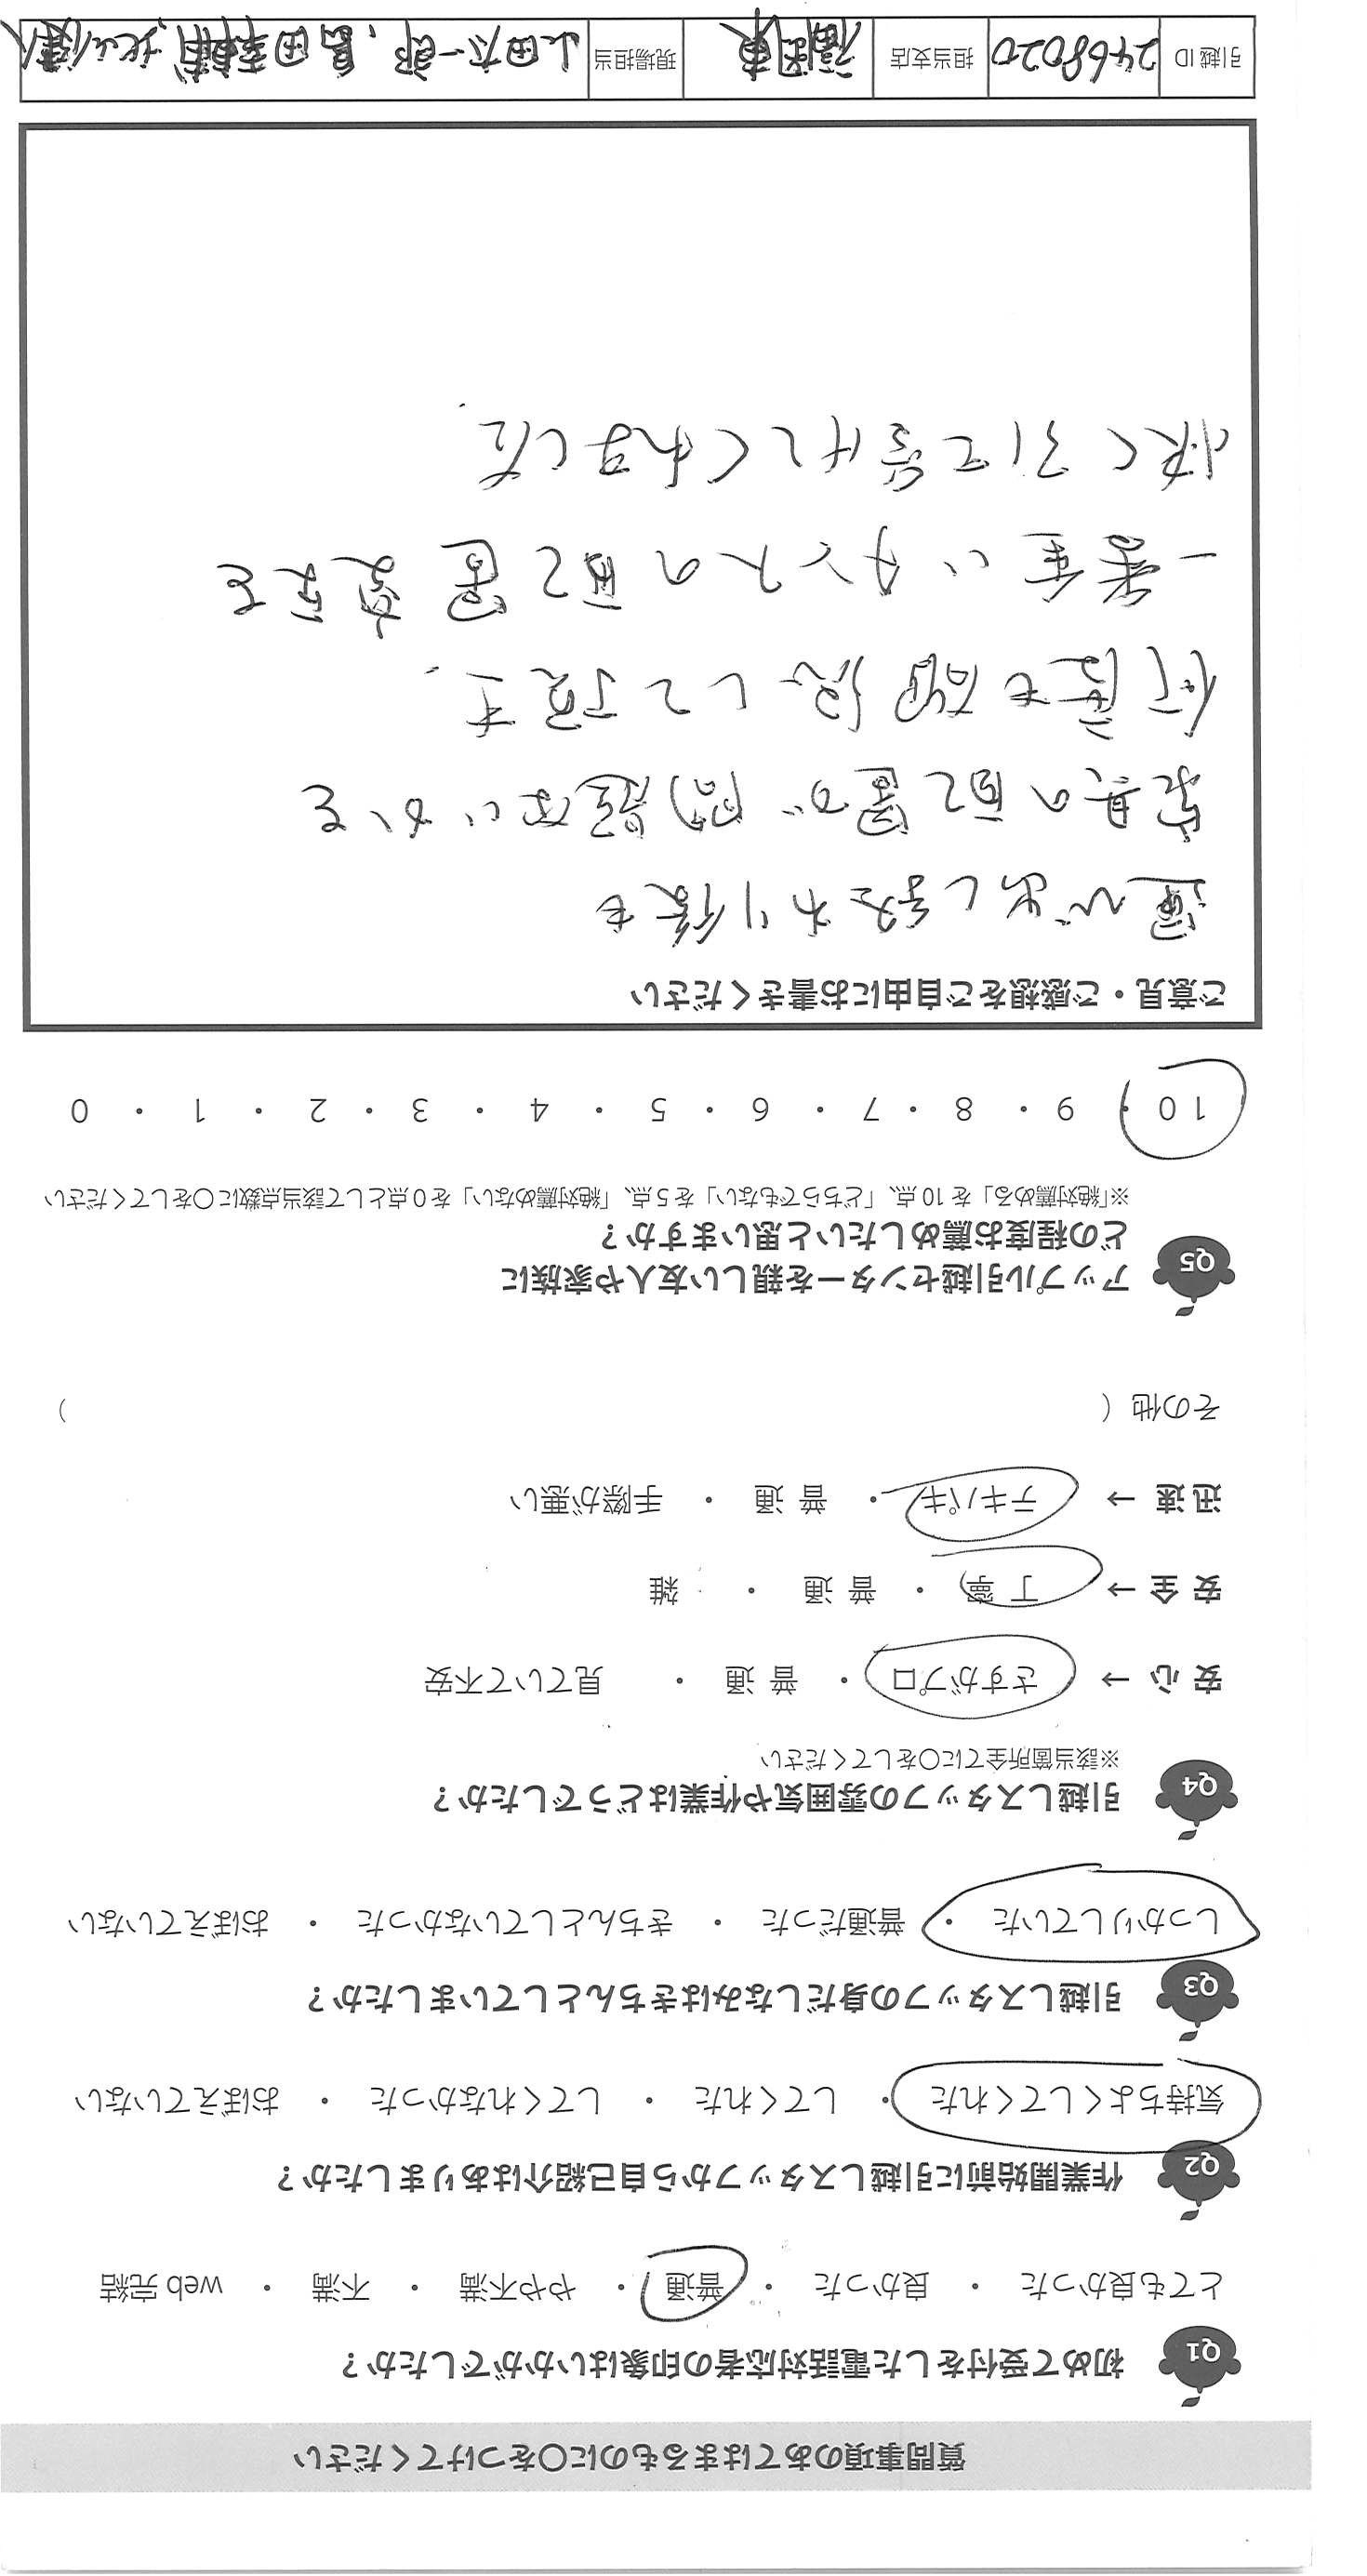 質問事項のあてはまるものに〇をつけてください
Q1 初めて受付をした電話対応者の印象はいかがでしたか？
とても良かった ・ 良かった ・ 普通 ・ やや不満 ・ 不満 ・ web 完結
Q2 作業開始前に引越しスタッフから自己紹介はありましたか？
気持ちよくしてくれた ・ してくれた ・ してくれなかった ・ おぼえていない
Q3 引越しスタッフの身だしなみはきちんとしていましたか？
しっかりしていた ・ 普通だった ・ きちんとしていなかった ・ おぼえていない
Q4 引越しスタッフの雰囲気や作業はどうでしたか？
※該当箇所全てに〇をしてください
安心 → さすがプロ ・ 普通 ・ 見ていて不安
安全 → 丁寧 ・ 普通 ・ 雑
迅速 → テキパキ ・ 普通 ・ 手際が悪い
その他 （ ）
Q5 アップル引越センターを親しい友人や家族に
どの程度お薦めしたいと思いますか？
※「絶対薦める」を 10 点、「どちらでもない」を 5 点、「絶対薦めない」を 0 点として該当点数に〇をしてください
10 ・ 9 ・ 8 ・ 7 ・ 6 ・ 5 ・ 4 ・ 3 ・ 2 ・ 1 ・ 0
ご意見・ご感想をご自由にお書きください
運び出し終わり後も
家具の配置が問題ないかを
何度も確認して頂き、
一番重いタンスの配置変えを
快く引き受けてくれました。
引越 ID 2468020 担当支店 福岡東 現場担当 山田太一郎、島田